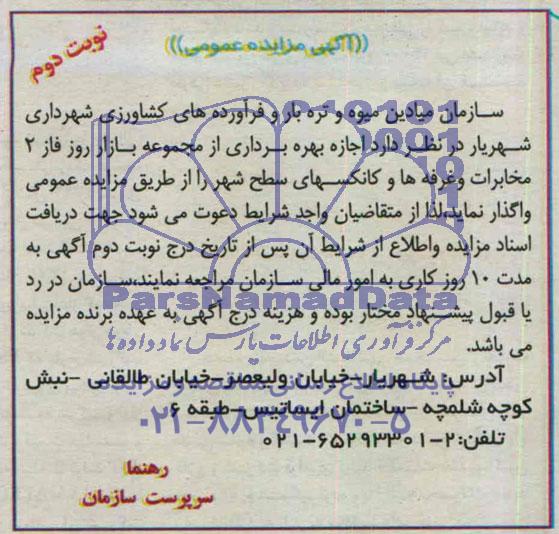 (((آگهی مزایده عمومی)))
نوبت دوم
سازمان میادین میوه و تره بار و فرآورده های کشاورزی شهرداری
شهریار در نظر دارد اجازه بهره برداری از مجموعه بازار روز فاز ۲
مخابرات وغرفه ها و کانکسهای سطح شهر را از طریق مزایده عمومی
واگذار نماید،لذا از متقاضیان واجد شرایط دعوت می شود جهت دریافت
اسناد مزایده واطلاع از شرایط آن پس از تاریخ درج نوبت دوم آگهی به
مدت ۱۰ روز کاری به امور مالی سازمان مراجعه نمایند،سازمان در رد
یا قبول پیشنهاد مختار بوده و هزینه درج آگهی به عهده برنده مزایده
می باشد.
آدرس: شهریار-خیابان ولیعصر-خیابان طالقانی -نبش
کوچه شلمچه -ساختمان ایساتیس-طبقه ۶
تلفن:۲-۶۵۲۹۳۳۰۱-۰۲۱
رهنما
سرپرست سازمان
ParsNamadData
مرکز فرآوری اطلاعات پارس نماد داده ها
۰۲۱-۸۸۳۴۹۶۷۰-۵